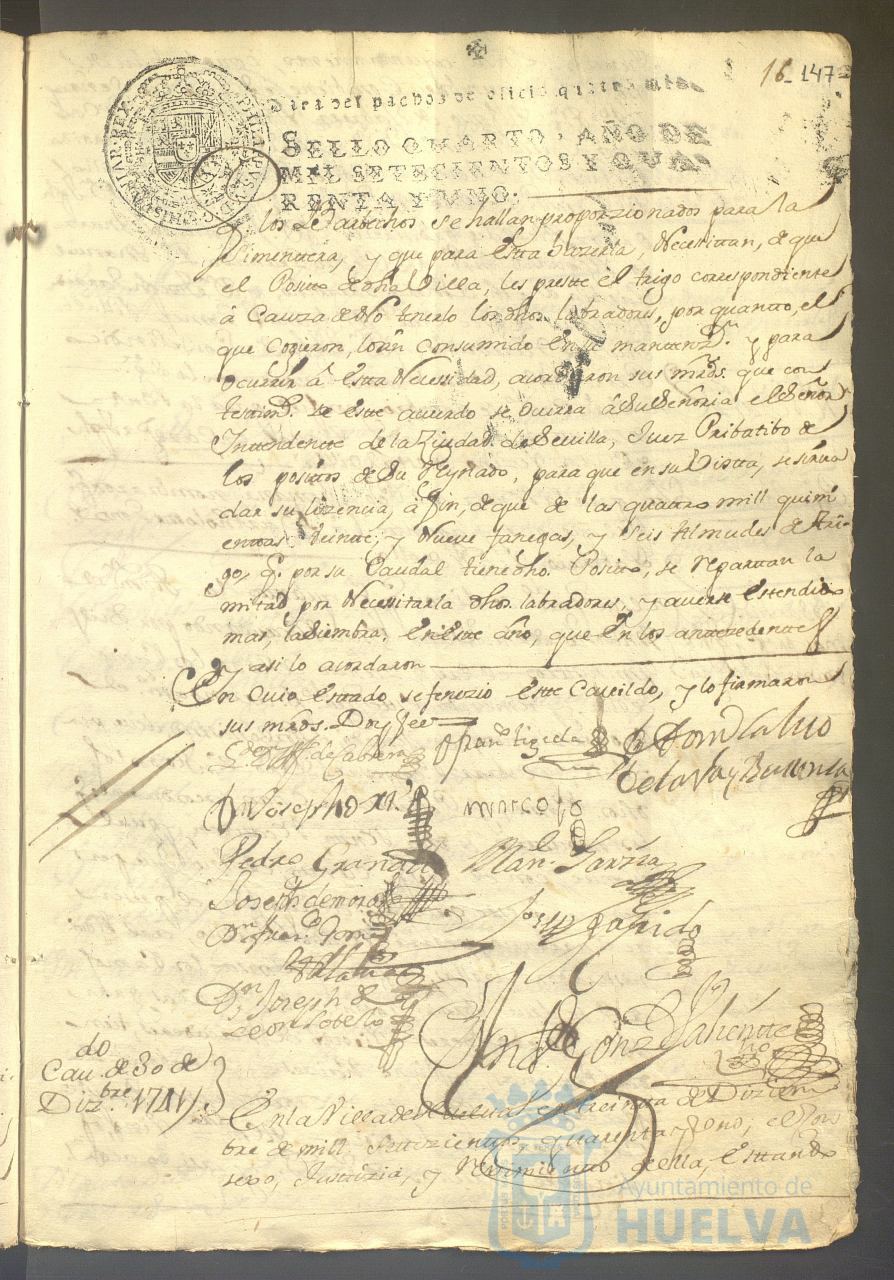 16- 147
PHILIPPUS V D G HISPANIAR REX
Para despachos de oficio quatro mrs.
SELLO QUARTO, AÑO DE
MIL SETECIENTOS Y QUA
RENTA Y UNO.
los Barbechos se hallan proporzionados para la
Simenttera, y que para estta hazerla, Necesittan, de que
el Positto de dha Villa, les prestte el trigo correspondiente
á Cauza de No tenerlo los dhos labradores, por quantto, el
que cogieron, lo an consumido en su manttenz.n y para
ocurrir á estta Necessidad, acordaron sus mrds. que con
testtim.o de estte acuerdo se ocurra á Su Señoria el Señor
Inttendentte de la Ziudad de Sevilla, Juez Pribatibo de
los posittos de Su Reynado, para que en su Vistta, se sirva
dar su lizencia, á fin, de que de las quattro mill quini
enttas Veintte, y Nueve fanegas, y seis Almudes de Tri-
go, q. por su Caudal tiene dho. Positto, se repartan la
mitad, por Necesitarla dhos. labradores, y averse esttendido
mas, la Siembra, en estte año, que en los anttecedenttes
y asi lo acordaron
En cuio esttado se fenezio estte Cavildo, y lo firmaron
sus mrds. Doy fee
de Cabrera Fran.co tizela D.n Gonzalo
de la Va y Buttron
D.n Joseph marcolo
Pedro Granado Man.l Garzia
Joseph de mora
D.n Fran.co Gomez Joseph garrido
D.n Joseph de
Leon Sotelo
Gonz. Valientte
Cav.do de 30 de
Diz.bre 1741
En la Villa de Huelva en treintta de Diziem
bre de mill settezienttos, quarentta y uno, el Con
sexo, Justtizia, y Reximientto de ella, esttando
Ayuntamiento de
HUELVA